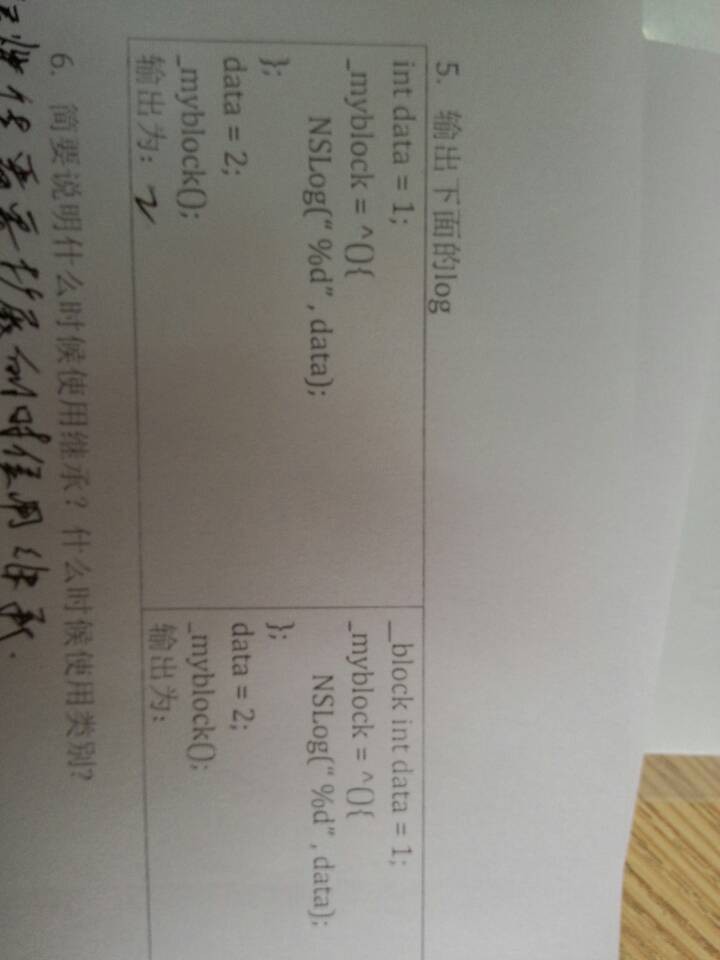 5. 输出下面的log
int data = 1;
_myblock = ^(){
NSLog(“%d”, data);
};
data = 2;
_myblock();
输出为: 2
__block int data = 1;
_myblock = ^(){
NSLog(“%d”, data);
};
data = 2;
_myblock();
输出为:
6. 简要说明什么时候使用继承? 什么时候使用类别?
需要扩展 时使用继承.